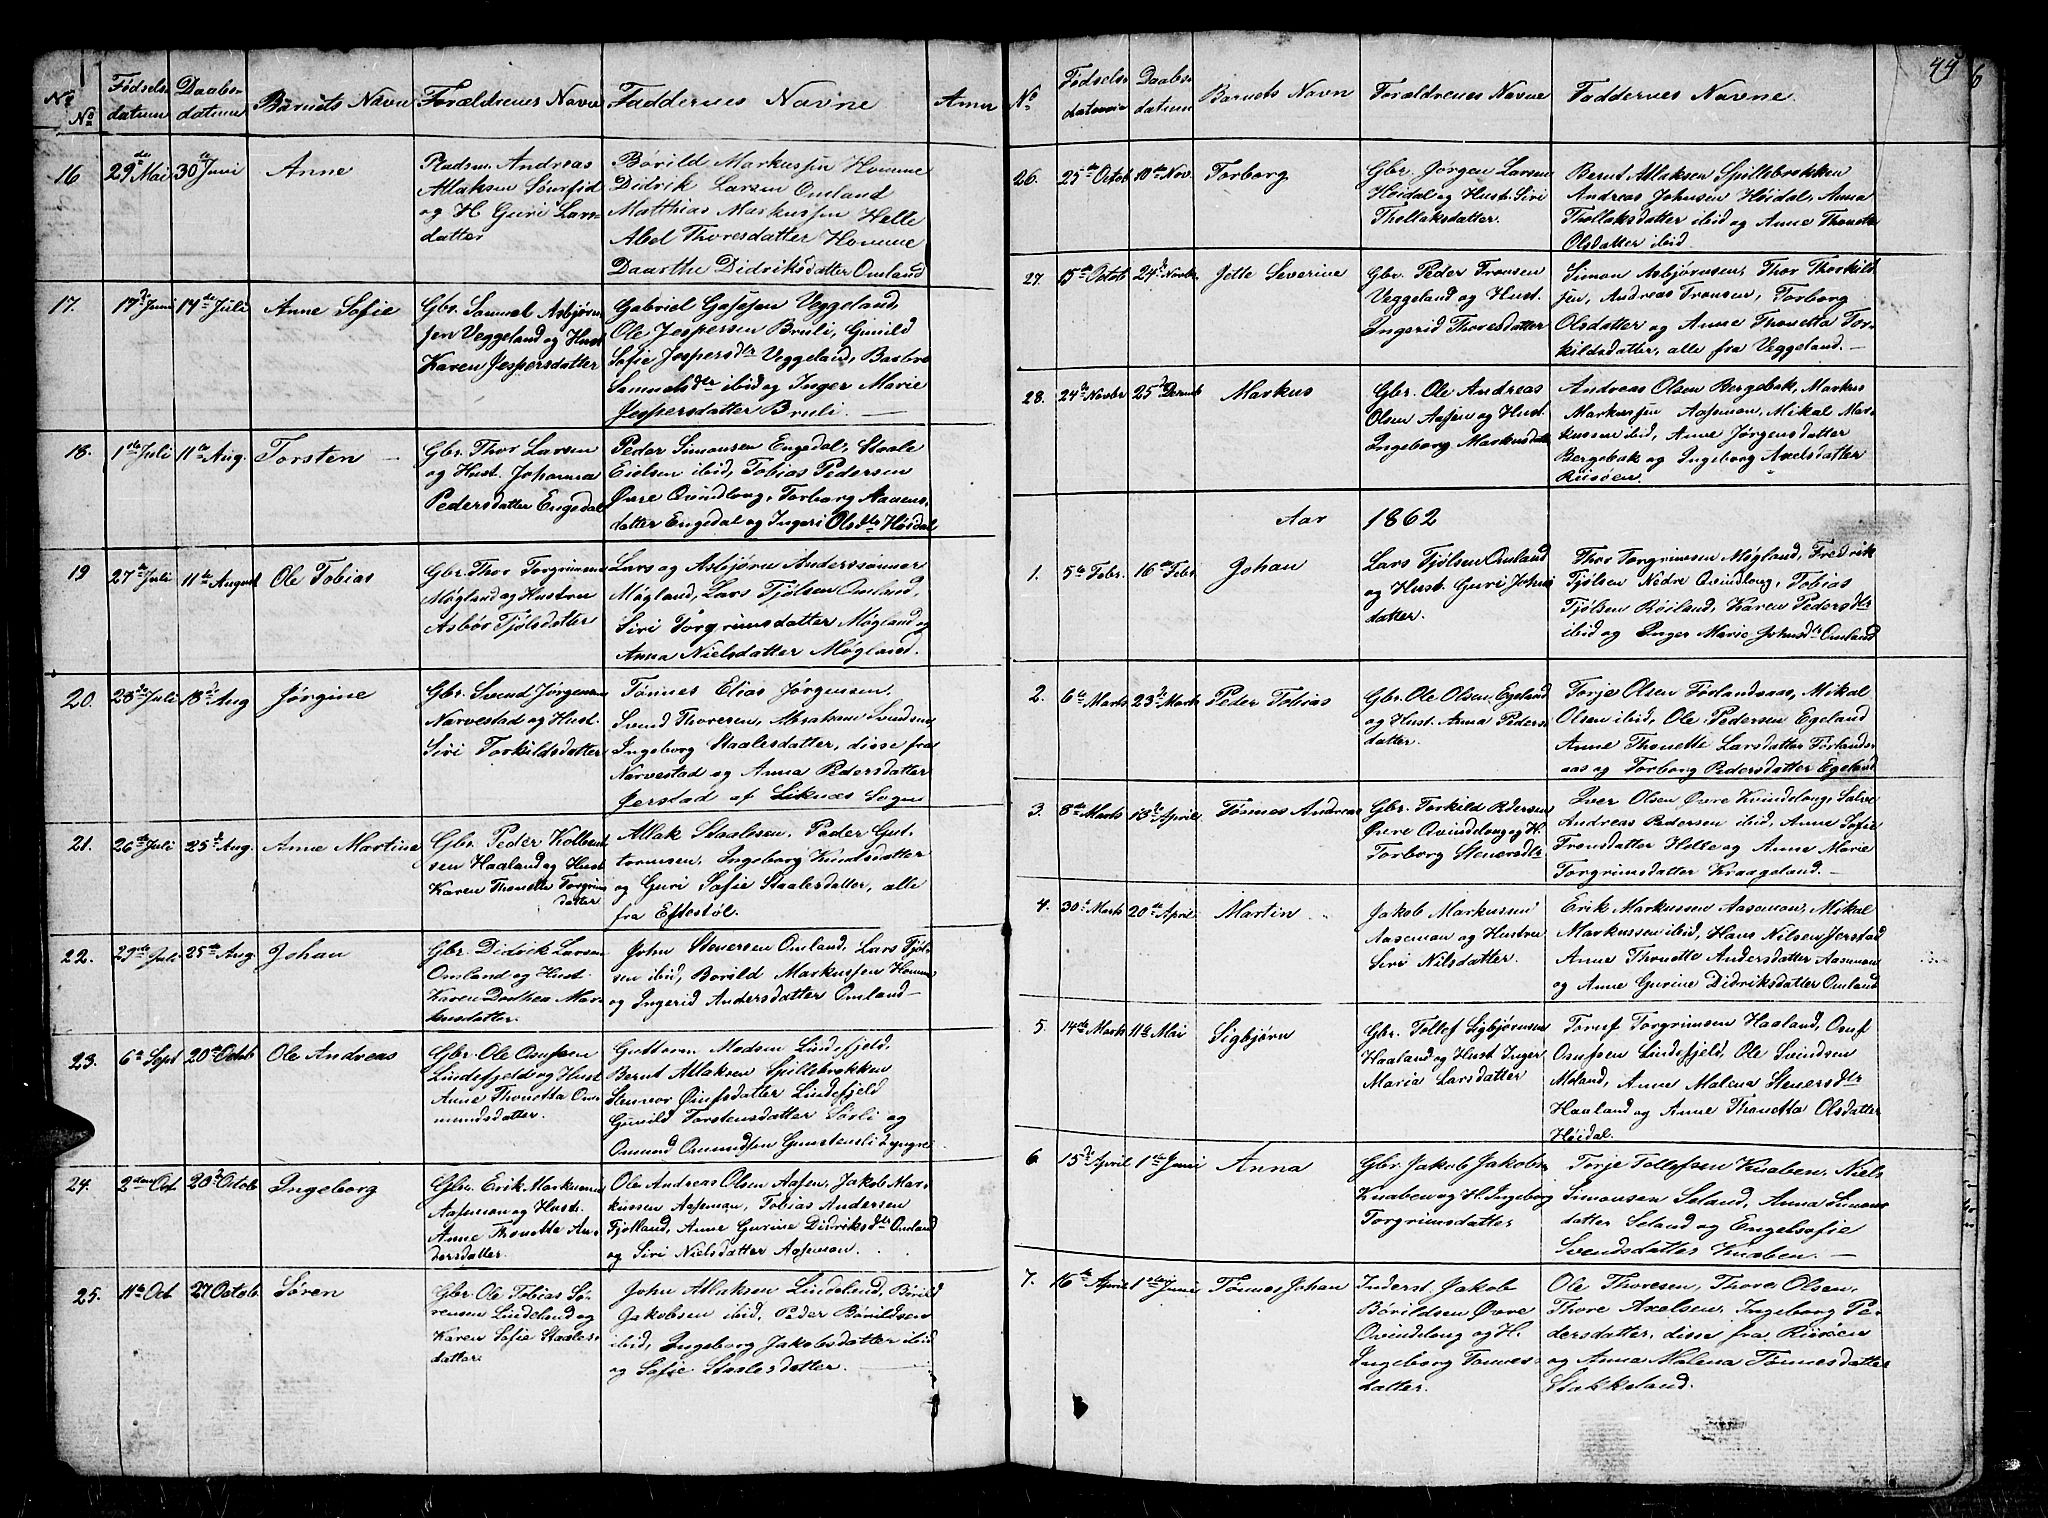 No Fødsels- Daabs- Barnets Navn Forældrenes Navne Faddernes Navne Anm
No datum datum
16 29de Mai 30te Juni Anne Pladsm. Andreas
Atlaksen
og H. Guri Lars-
datter
Børild Markussen Homme
Didrik Larsen Omland
Matthias Markussen Helle
Abel Thoresdatter Homme
Daarthe Didriksdatter Omland
17. 17de Juni 14de Juli Anne Sofie Gbr. Samuel Asbjørn-
sen Veggeland og Hust
Karen Jespersdatter
Gabriel Veggeland,
Ole Jespersen Bruli, Gunild
Sofie Jespersdtr Veggeland, Basbro
Samuelsdtr ibid og Inger Marie
Jespersdatter Bruli. —
18. 1ste Juli 11te Aug. Torsten — Gbr. Thor Larsen
og Hust. Johanna
Pedersdatter Engedal
Peder Simonsen Engedal, Staale
Eielsen ibid, Tobias Pedersen
Øvre Qvindlong, Torborg Aanens-
datter Engedal og Ingeri Olsdtr Høidal
19 27de Juli 11te August Ole Tobias Gbr. Thor Torgrimsen
Møgland og Hustru
Asbør Tjølsdatter
Lars og Asbjørn Anderssønner
Møgland, Lars Tjølsen Omland,
Siri Torgrimsdatter Møgland og
Anna Nielsdatter Møgland.
20. 28de Juli 18de Aug Jørgine Gbr. Svend Jørgensen
Narvestad og Hust.
Siri Torkildsdatter
Tønnes Elias Jørgensen,
Svend Thoresen, Abraham Svendsen
Ingeborg Staalesdatter, disse fra
Narvestad og Anna Pedersdatter
Øierstad af Liknæs Sogn
21. 26de Juli 25de Aug. Anne Martine Gbr. Peder Kolbens-
sen Haaland og Hust
Karen Thonette Torgrims
datter
Atlak Staalesen, Peder Gut-
tormsen, Ingeborg Knudsdatter
og Guri Sofie Staalesdatter, alle
fra Eftestøl.
22. 29de Juli 25de Aug Johan Gbr. Didrik Larsen
Omland og Hust.
Karen Dorthea Mar-
kusdatter.
John Steversen Omland, Lars Tjøl-
sen ibid, Børild Markussen Homme
og Ingerid Andersdatter Omland—
23. 6te Sept 20de Octob Ole Andreas Gbr. Ole Osufsen
Lindefjeld og Hust
Anne Thonetta Om-
mundsdatter.
Guttorm Madsen Lindefjeld,
Bernt Atlaksen Spillebrokken
Stenvor Osufsdatter Lindefjeld
Gunild Torstensdatter Sørli og
Omund Omundsen Gunstensli Lyngre
24. 2den Oct 20de Octob Ingeborg Gbr. Erik Markussen
Aasemon og Hust.
Anne Thonette An-
dersdatter.
Ole Andreas Olsen Aasen, Jakob Mar-
kussen Aasemon, Tobias Andersen
Fjotland, Anne Gurine Didriksdtr Omland
og Siri Nielsdatter Aasemon.
25. 11te Oct 27 Octob. Søren Gbr. Ole Tobias Sø-
rensen Lindeland og
Karen Sofie Staales-
datter.
John Atlaksen Lindeland, Børild
Jakobsen ibid, Peder Børildsen
ibid, Ingeborg Jakobsdatter ibid
og Sofie Staalesdatter. —
44
No Fødsels- Daabs- Barnets Navn Forældrenes Navne Faddernes Navne.
datum datum
26. 25de Octob 10de Nov. Torborg Gbr. Jørgen Larsen
Høidal og Hust. Siri
Thollaksdatter.
Bernt Atlaksen Spillebrokken
Andreas Johnsen Høidal, Anna
Thollaksdatter ibid og Anne Thonette
Olsdatter ibid.
27. 15de Octob 24de Novbr. Jette Severine Gbr. Peder Tronsen
Veggeland og Hust.
Ingerid Thoresdatter
Simon Asbjørnsen, Thor Thorkild
sen, Andreas Tronsen, Torborg
Olsdatter og Anne Thonetta Tor-
kildsdatter, alle fra Veggeland. —
28. 24de Novbr 25de Decmb Markus Gbr. Ole Andreas
Olsen Aasen og Hust.
Ingeborg Markusdatter
Andreas Olsen Bergebak, Markus
Markussen Aasemon, Mikal Mar-
kussen ibid, Anne Jørgensdatter
Bergebak og Ingeborg Axelsdatter
Riisøen.
Aar 1862
1. 5te Febr. 16de Febr. Johan Lars Tjølsen Omland
og Hust. Guri Johns
datter.
Thor Torgrimsen Møgland, Fredrik
Tjølsen Nedre Qvindlong, Tobias
Tjølsen Røiland, Karen Pedersdtr
ibid og Inger Marie Johnsdtr Omland
2. 6te Marts 23de Marts Peder Tobias Gbr. Ole Olsen Egeland
og Hust. Anna Peders
datter.
Torje Olsen Førlandsaas, Mikal
Olsen ibid, Ole Pedersen Egeland
Anne Thonette Larsdatter Førlands-
aas og Torborg Pedersdatter Egeland
3. 8de Marts 13de April Tønnes Andreas Gbr. Torkild Pedersen
Øvre Qvindlong og H.
Torborg Stenersdtr
Iver Olsen Øvre Kvindelong, Salve
Andreas Pedersen ibid, Anne Sofie
Tronsdatter Helle og Anne Marie
Torgrimsdatter Kraageland. —
4. 30te Marts 20de April Martin Jakob Markussen
Aasemon og Hustru
Siri Nilsdatter.
Erik Markussen Aasemon, Mikal
Markussen ibid, Hans Nilsen Jerstad
Anne Thonette Andersdatter Aasemon
og Anne Gurine Didriksdatter Omland
5. 14de Marts 11te Mai Sigbjørn Gbr. Tollef Sigbjørnsen
Haaland og Hust Inger
Maria Larsdatter
Toruf Torgrimsen Haaland, Osuf
Osufsen Lindefjeld, Ole Svindsen
Moland, Anne Malena Stenersdtr
Haaland og Anne Thonetta Olsdatter
Høidal.
6 15de April 1ste Juni Anna Gbr. Jakob Jakobsen
Knaben og H. Ingeborg
Torgrimsdatter
Torje Tollefsen Knaben, Niels
Simonsen Seland, Anna Simons
datter Seland og Engelsofie
Svendsdatter Knaben. —
7. 16de April 1ste Juni Tønnes Johan Inderst. Jakob
Børildsen Øvre
Qvindlong og H.
Ingeborg Tønnes-
datter.
Ole Thoresen, Thore Olsen,
Thore Axelsen, Ingeborg Pe-
dersdatter, disse fra Riisøen
og Anna Malena Tønnesdatter
Stakkeland.